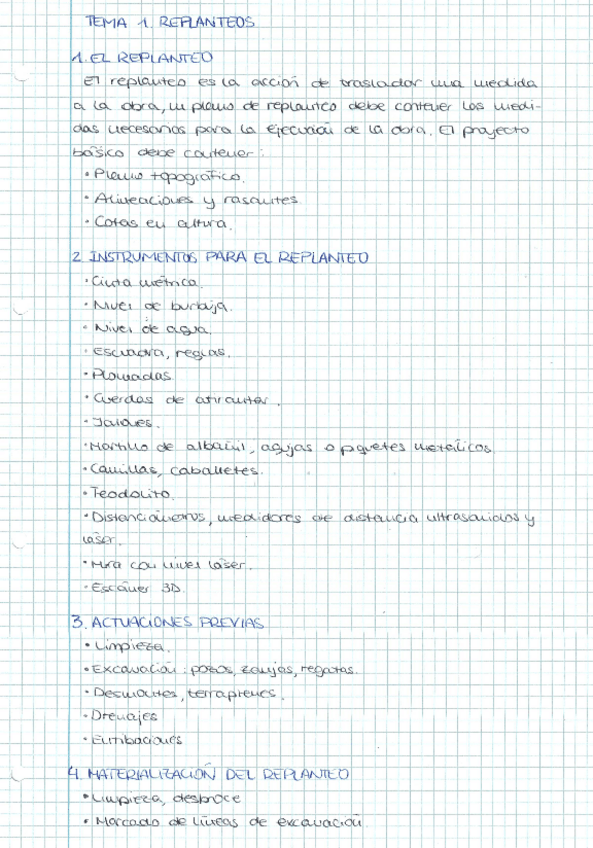 TEMA 1. REPLANTEOS
1. EL REPLANTEO
El replanteo es la acción de trasladar una medida
a la obra, un plano de replanteo debe contener las medi-
das necesarias para la ejecución de la obra. El proyecto
básico debe contener:
• Plano topográfico.
• Alineaciones y rasantes.
• Cotas en altura.
2 INSTRUMENTOS PARA EL REPLANTEO
• Cinta métrica.
• Nivel de burbuja.
• Nivel de agua.
• Escuadra, reglas.
• Plomadas.
• Cuerdas de atirantar.
• Jalones.
• Martillo de albañil, agujas o piquetes metálicos.
• Camillas, caballetes.
• Teodolito.
• Distanciómetros, medidores de distancia ultrasonidos y
láser.
• Mira con nivel láser.
• Escáner 3D.
3. ACTUACIONES PREVIAS
• Limpieza.
• Excavación: pozos, zanjas, regatas.
• Desmontes, terraplenes.
• Drenajes
• Entibaciones
4. MATERIALIZACIÓN DEL REPLANTEO
• Limpieza, desbroce
• Marcado de líneas de excavación.